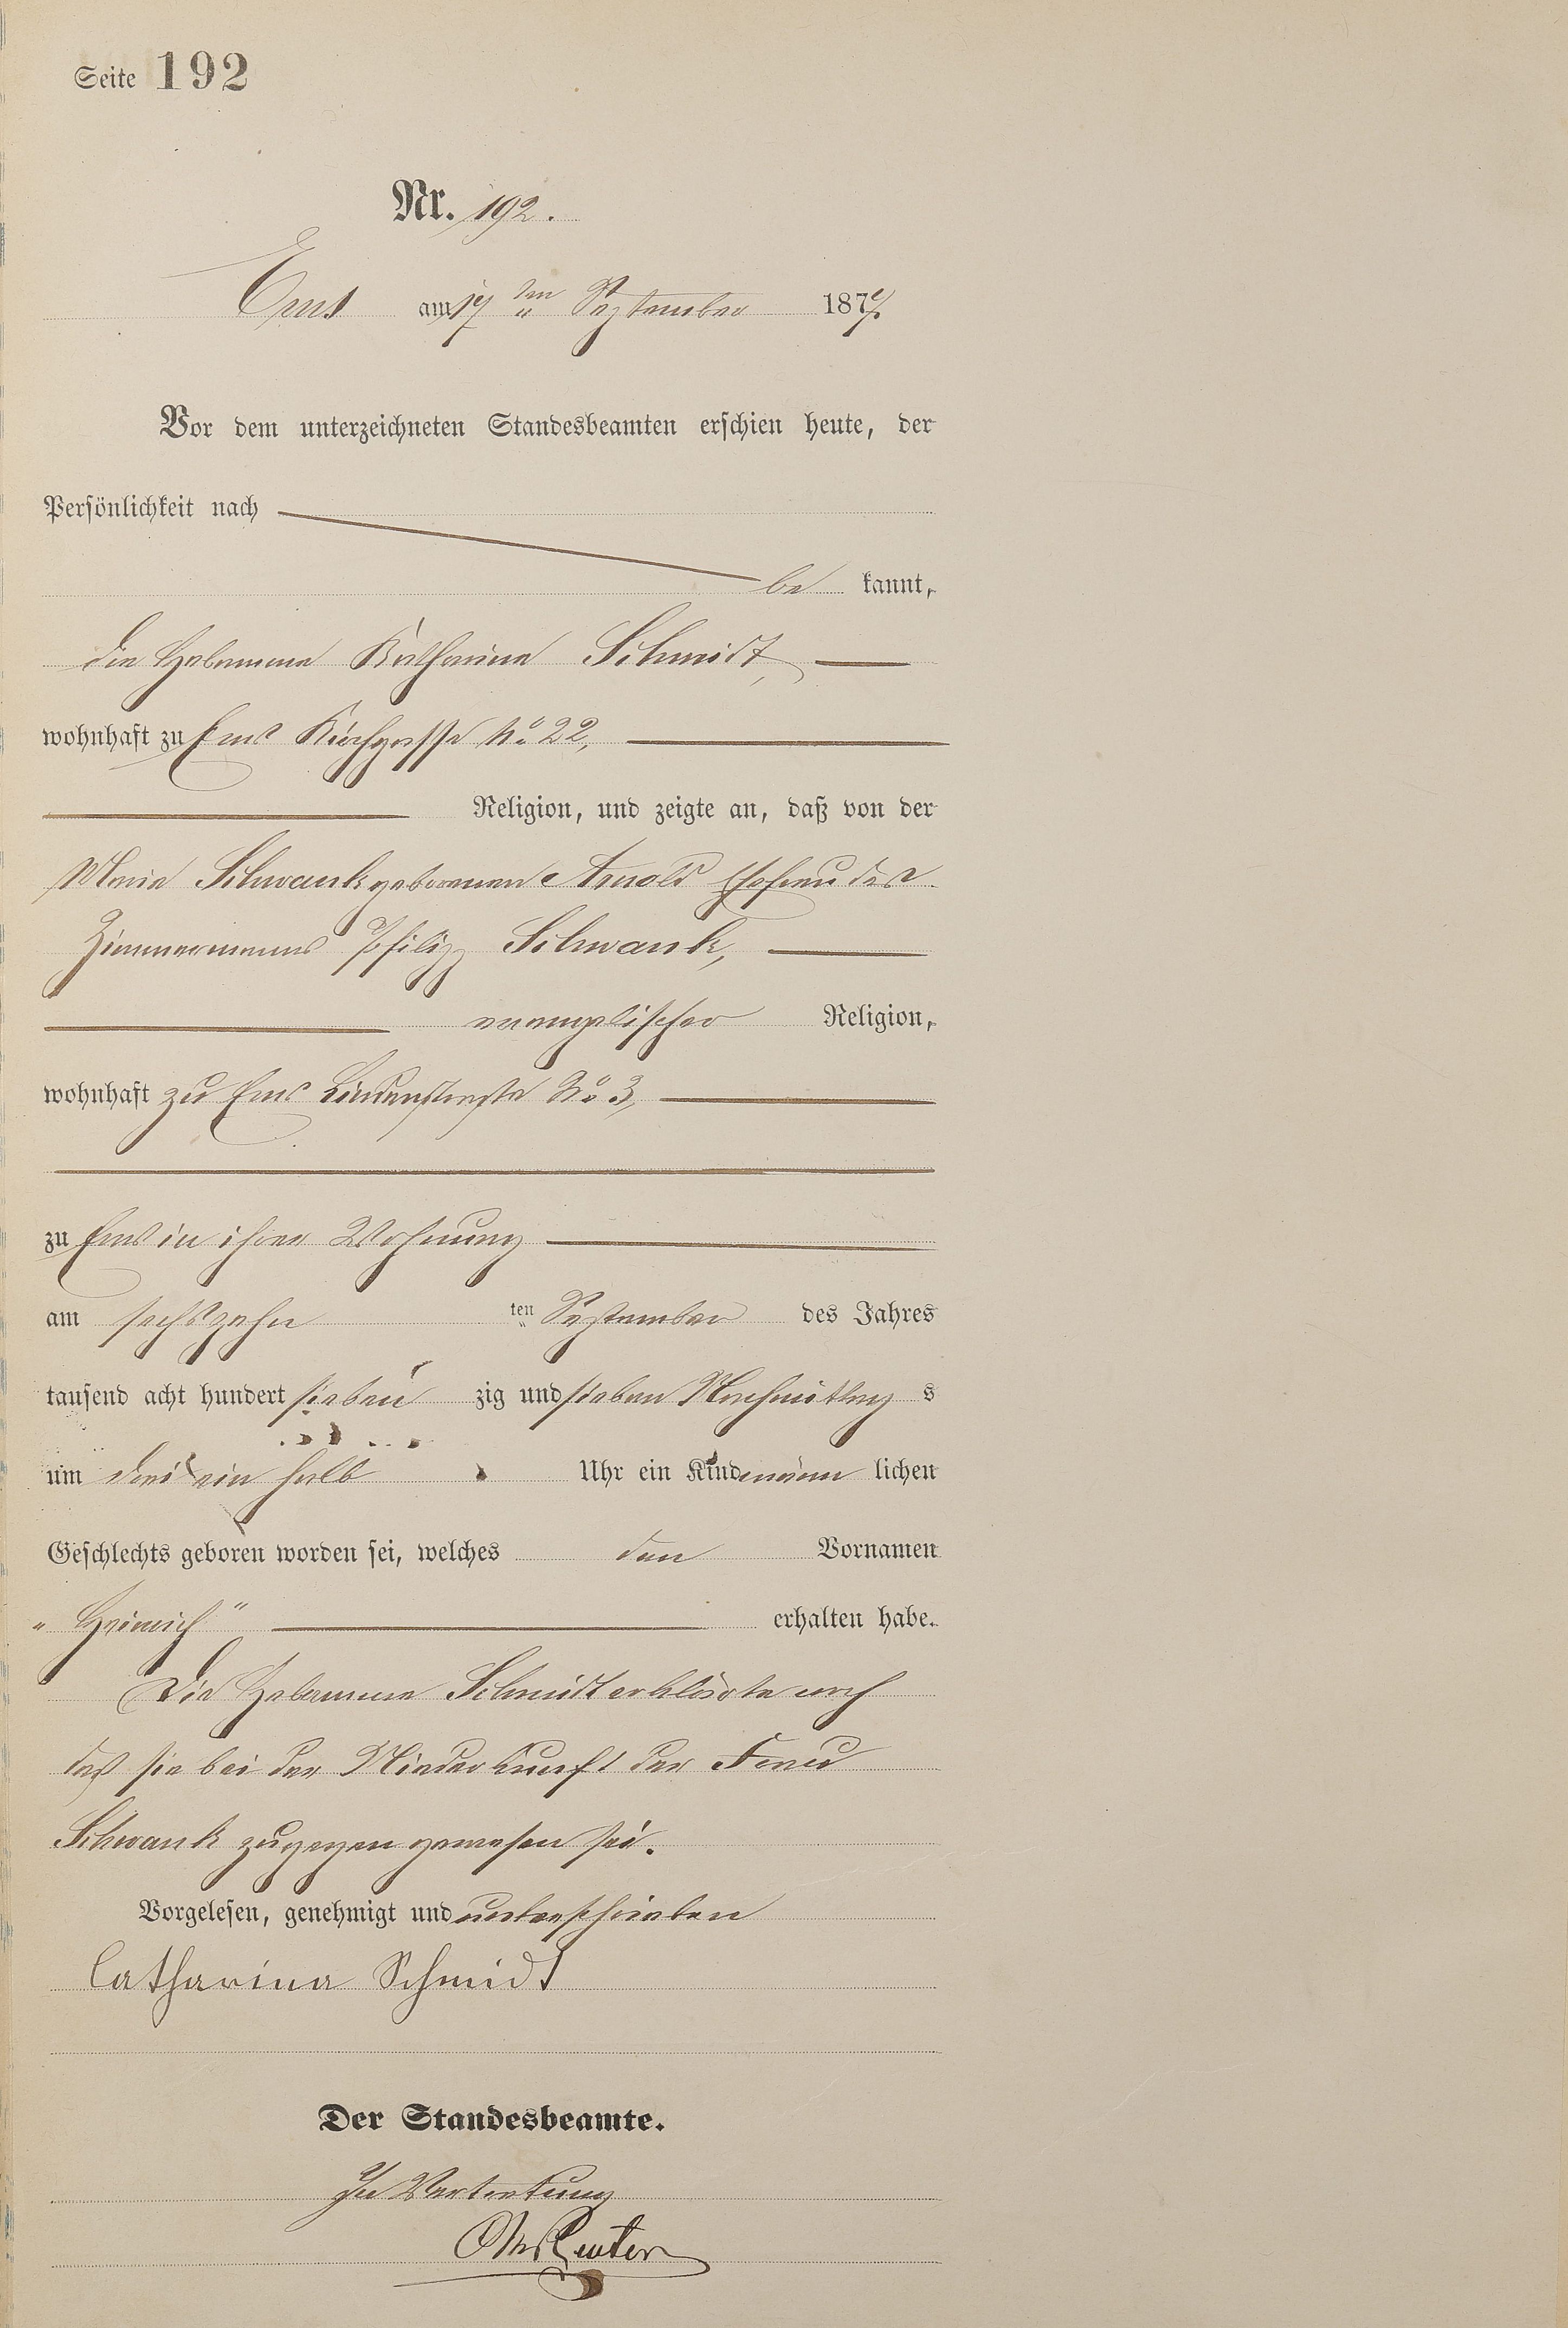 Seite 192
Nr. 192.
Ems am 17 ten September 1877.
Vor dem unterzeichneten Standesbeamten erschien heute, der
Persönlichkeit nach
be kannt,
die Hebamme Katharina Schmidt,
wohnhaft zu Ems Kirchgasse No 22,
Religion, und zeigte an, daß von der
Maria Schwank geborenen Arnold Ehefrau des
Zimmermanns Philipp Schwank,
evangelischer Religion,
wohnhaft zu Ems Lindenstraße No 3,
zu Ems in ihrer Wohnung
am sechszehn ten September des Jahres
tausend acht hundert sieben zig und sieben Nachmittag s
um drei ein halb Uhr ein Kind männ lichen
Geschlechts geboren worden sei, welches den Vornamen
„Heinrich" erhalten habe.
Die Hebamme Schmidt erklärte noch
daß sie bei der Niederkunft der Frau
Schwank zugegen gewesen sei.
Vorgelesen, genehmigt und unterschrieben
Catharina Schmidt
Der Standesbeamte.
In Vertretung
Reuter